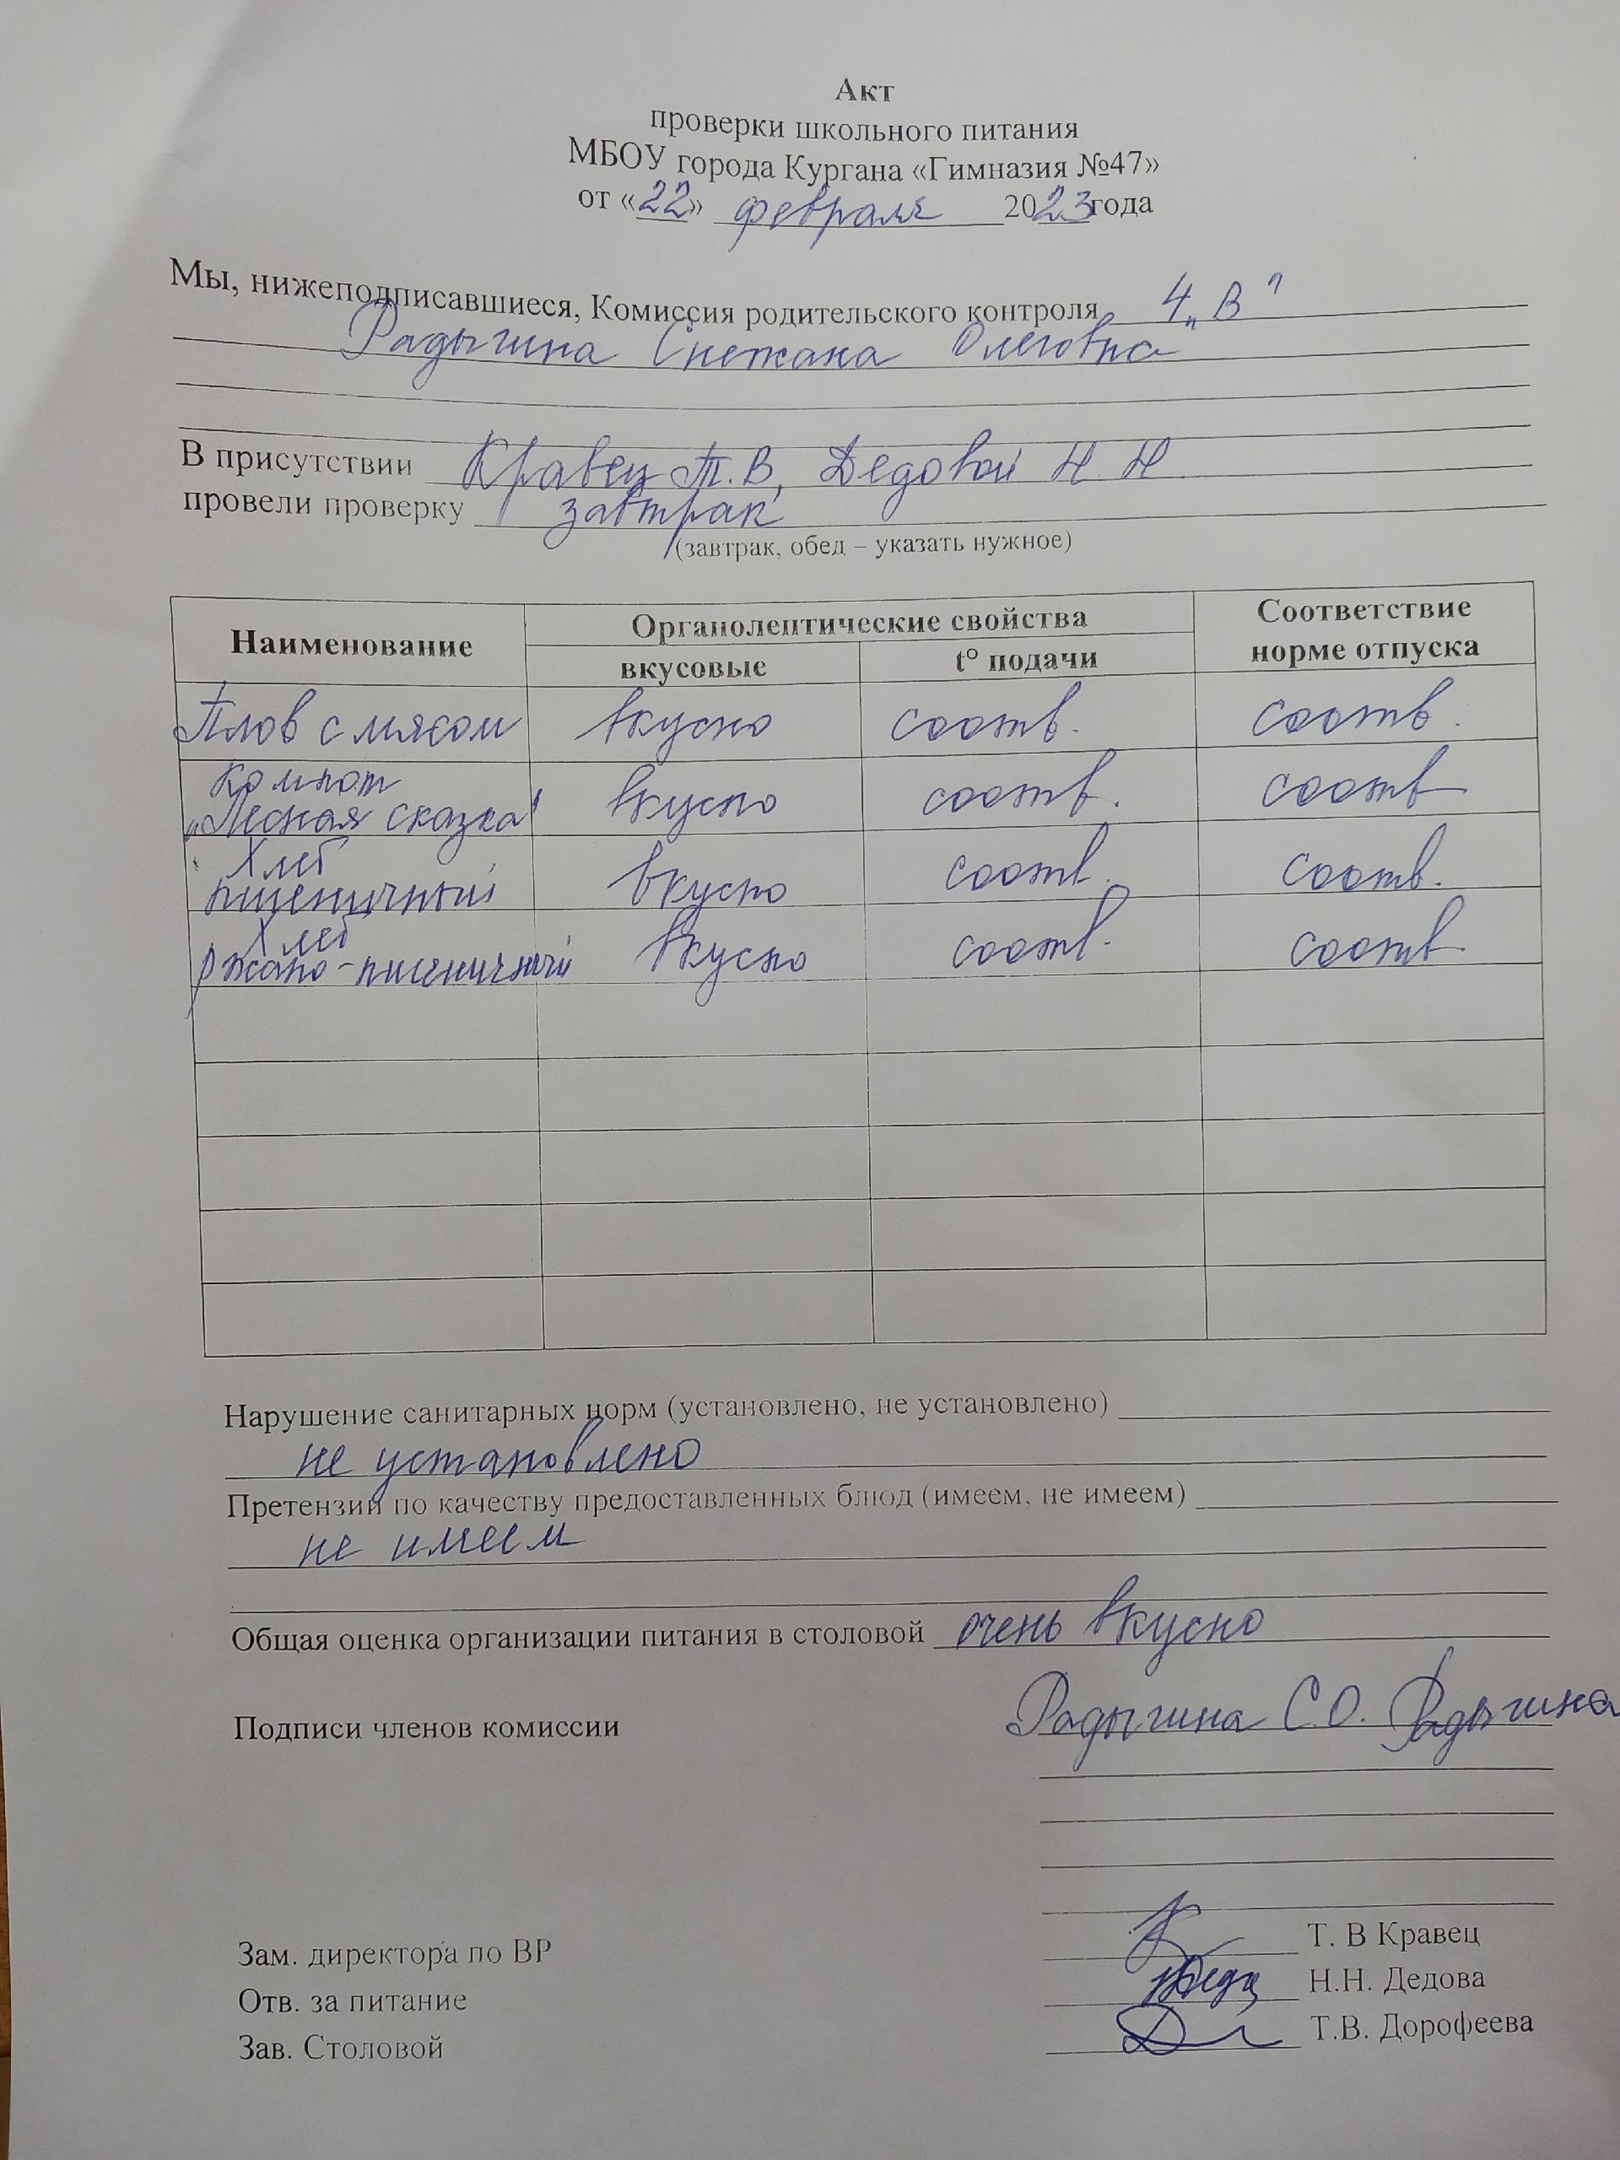 Акт
проверки школьного питания
МБОУ города Кургана «Гимназия №47»
от «22» февраля 2023года
Мы, нижеподписавшиеся, Комиссия родительского контроля 4 „В"
Радыгина Снежана Олеговна
В присутствии Кравец Т.В, Дедовой Н. Н.
провели проверку завтрак
(завтрак, обед – указать нужное)
Наименование Органолептические свойства Соответствие норме отпуска
вкусовые t° подачи
Плов с мясом вкусно соотв. соотв.
Компот
„Лесная сказка" вкусно соотв. соотв
Хлеб
пшеничный вкусно соотв. соотв.
Хлеб
ржано-пшеничный вкусно соотв. соотв
Нарушение санитарных норм (установлено, не установлено)
не установлено
Претензии по качеству предоставленных блюд (имеем, не имеем)
не имеем
Общая оценка организации питания в столовой очень вкусно
Подписи членов комиссии Радыгина С.О. Радыгина
Зам. директора по ВР Т. В Кравец
Отв. за питание Н.Н. Дедова
Зав. Столовой Т.В. Дорофеева